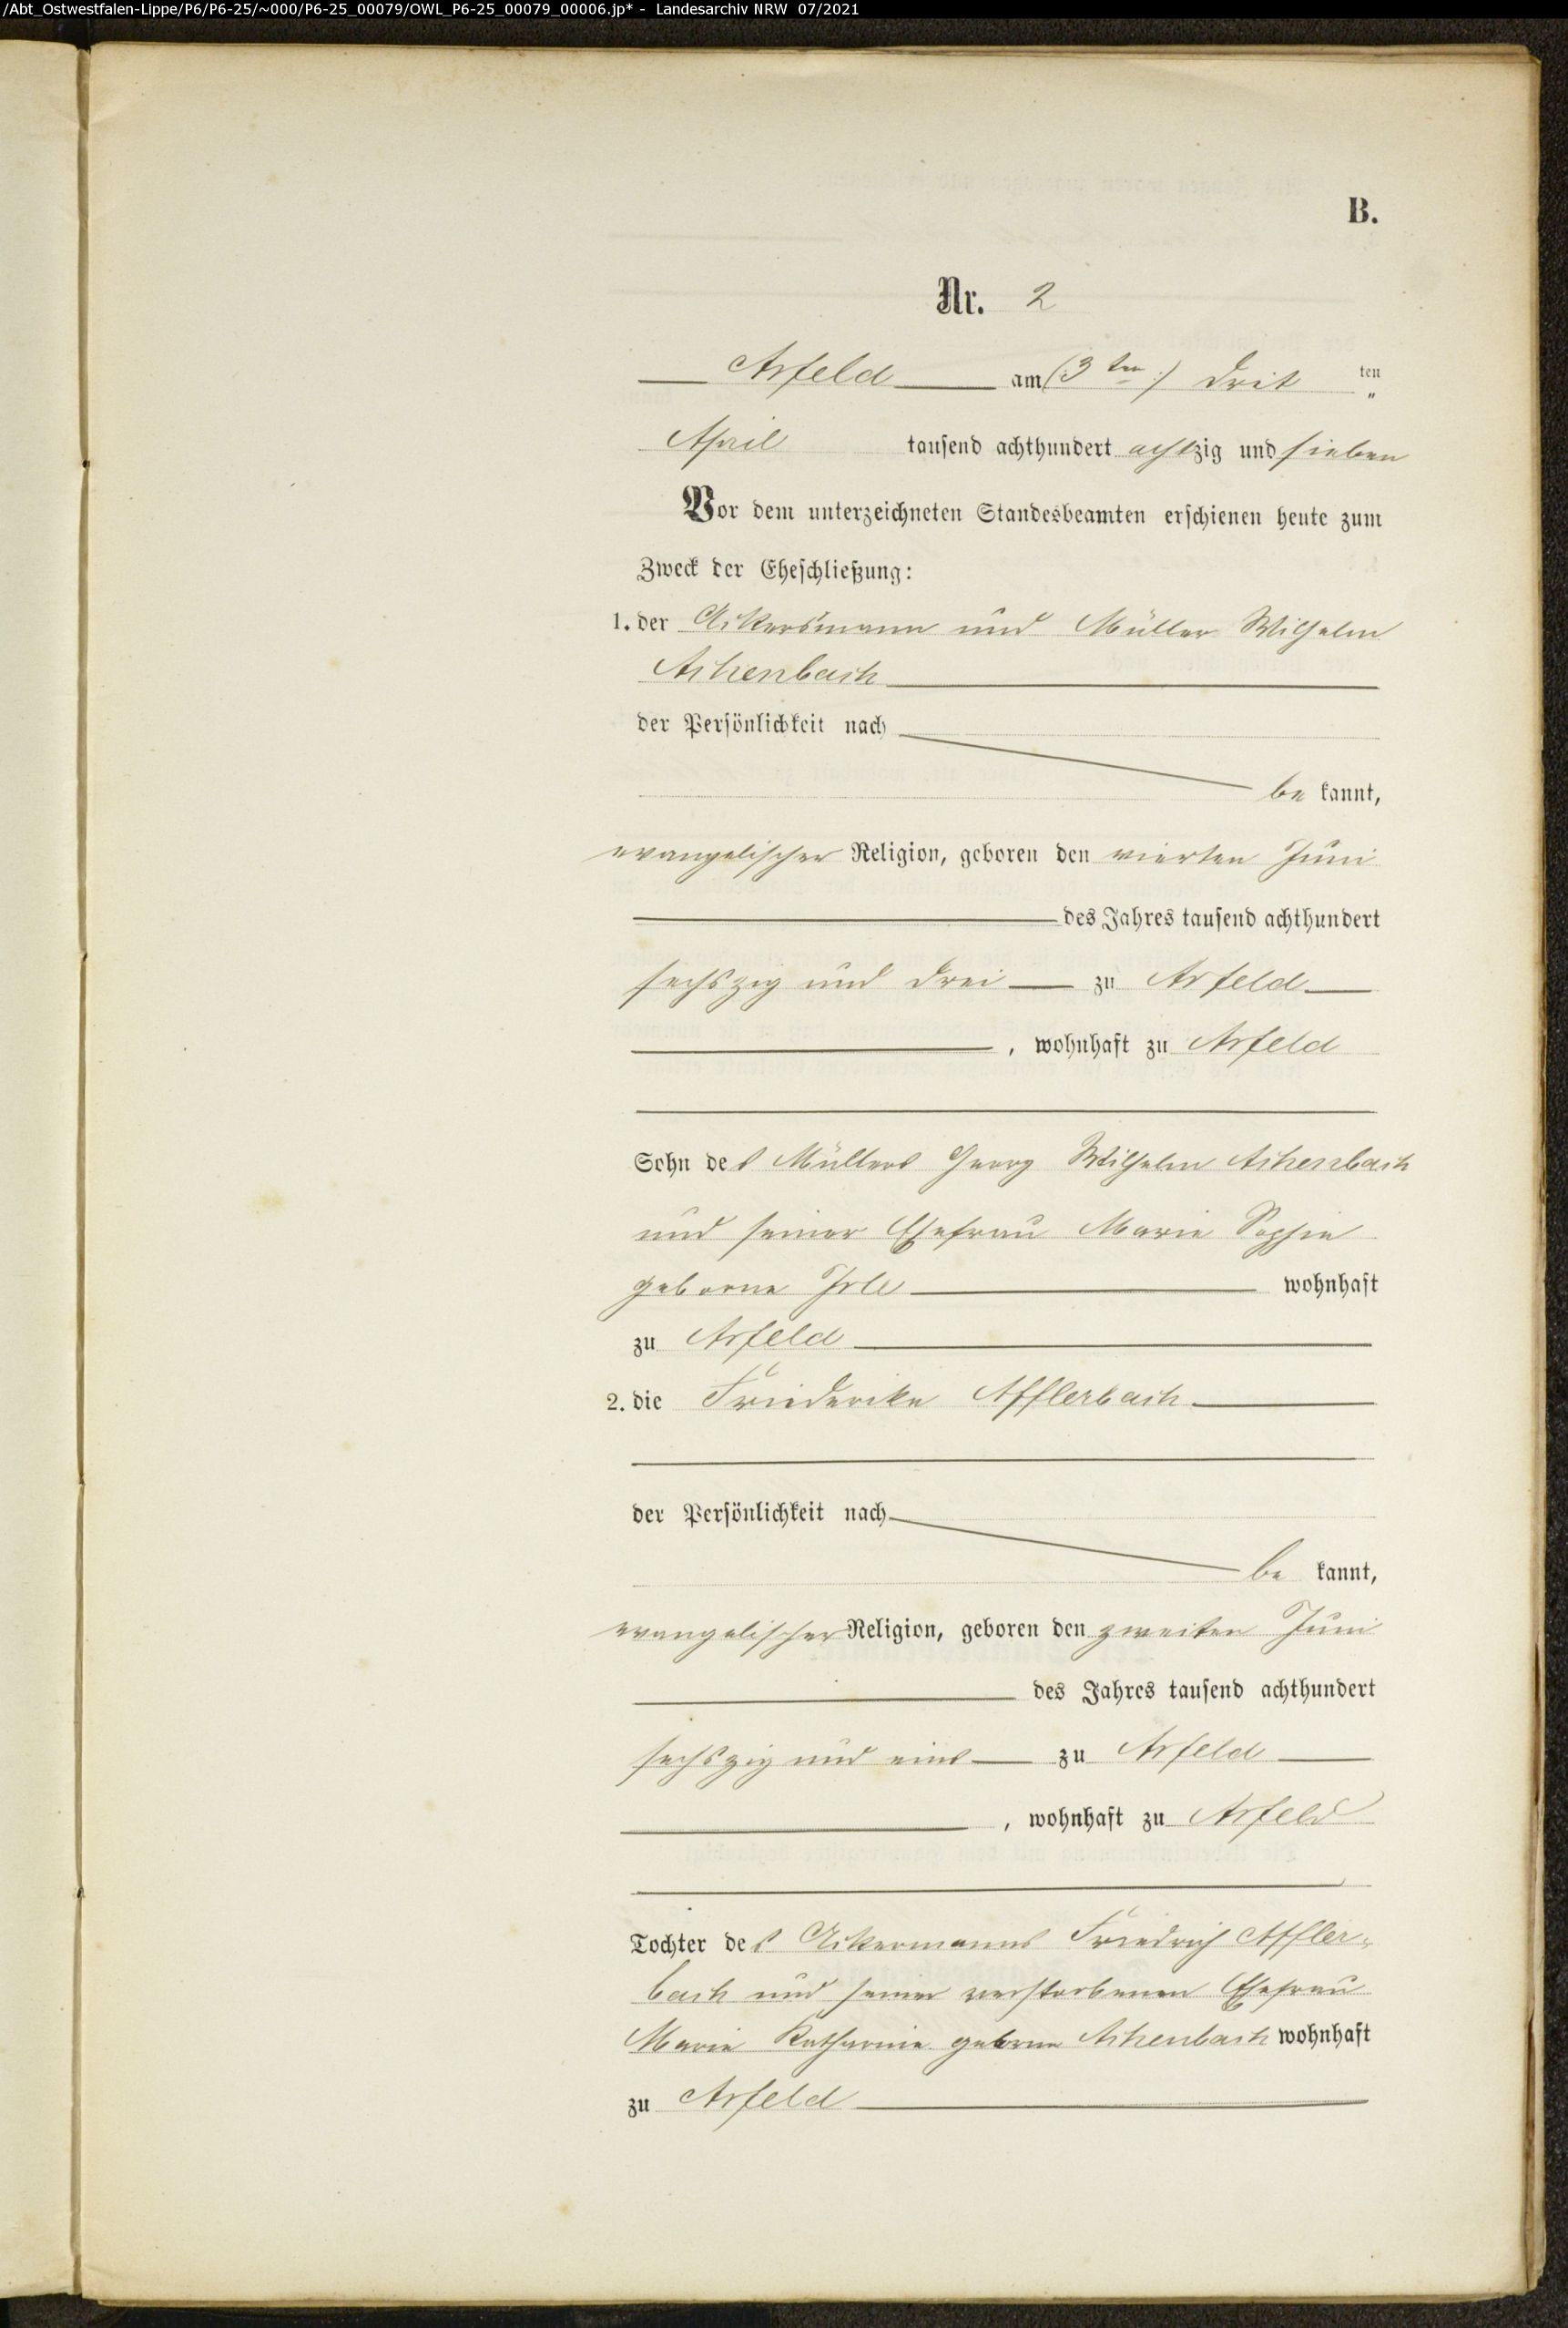 /Abt_Ostwestfalen-Lippe/P6/P6-25/~000/P6-25_00079/OWL_P6-25_00079_00006.jp* - Landesarchiv NRW 07/2021
B.
Nr. 2
Arfeld am (3ten) drit ten
April tausend achthundert achtzig und sieben
Vor dem unterzeichneten Standesbeamten erschienen heute zum
Zweck der Eheschließung:
1. der Ackersmann und Müller Wilhelm
Achenbach
der Persönlichkeit nach
be kannt,
evangelischer Religion, geboren den vierten Juni
des Jahres tausend achthundert
sechszig und drei zu Arfeld
, wohnhaft zu Arfeld
Sohn des Müllers Georg Wilhelm Achenbach
und seiner Ehefrau Marie Sophie
geborne Irle wohnhaft
zu Arfeld
2. die Friederike Afflerbach
der Persönlichkeit nach
be kannt,
evangelischer Religion, geboren den zweiten Juni
des Jahres tausend achthundert
sechszig und eins zu Arfeld
, wohnhaft zu Arfeld
Tochter des Ackermanns Friedrich Affler-
bach und seiner verstorbenen Ehefrau
Marie Katharine geborne Achenbach wohnhaft
zu Arfeld